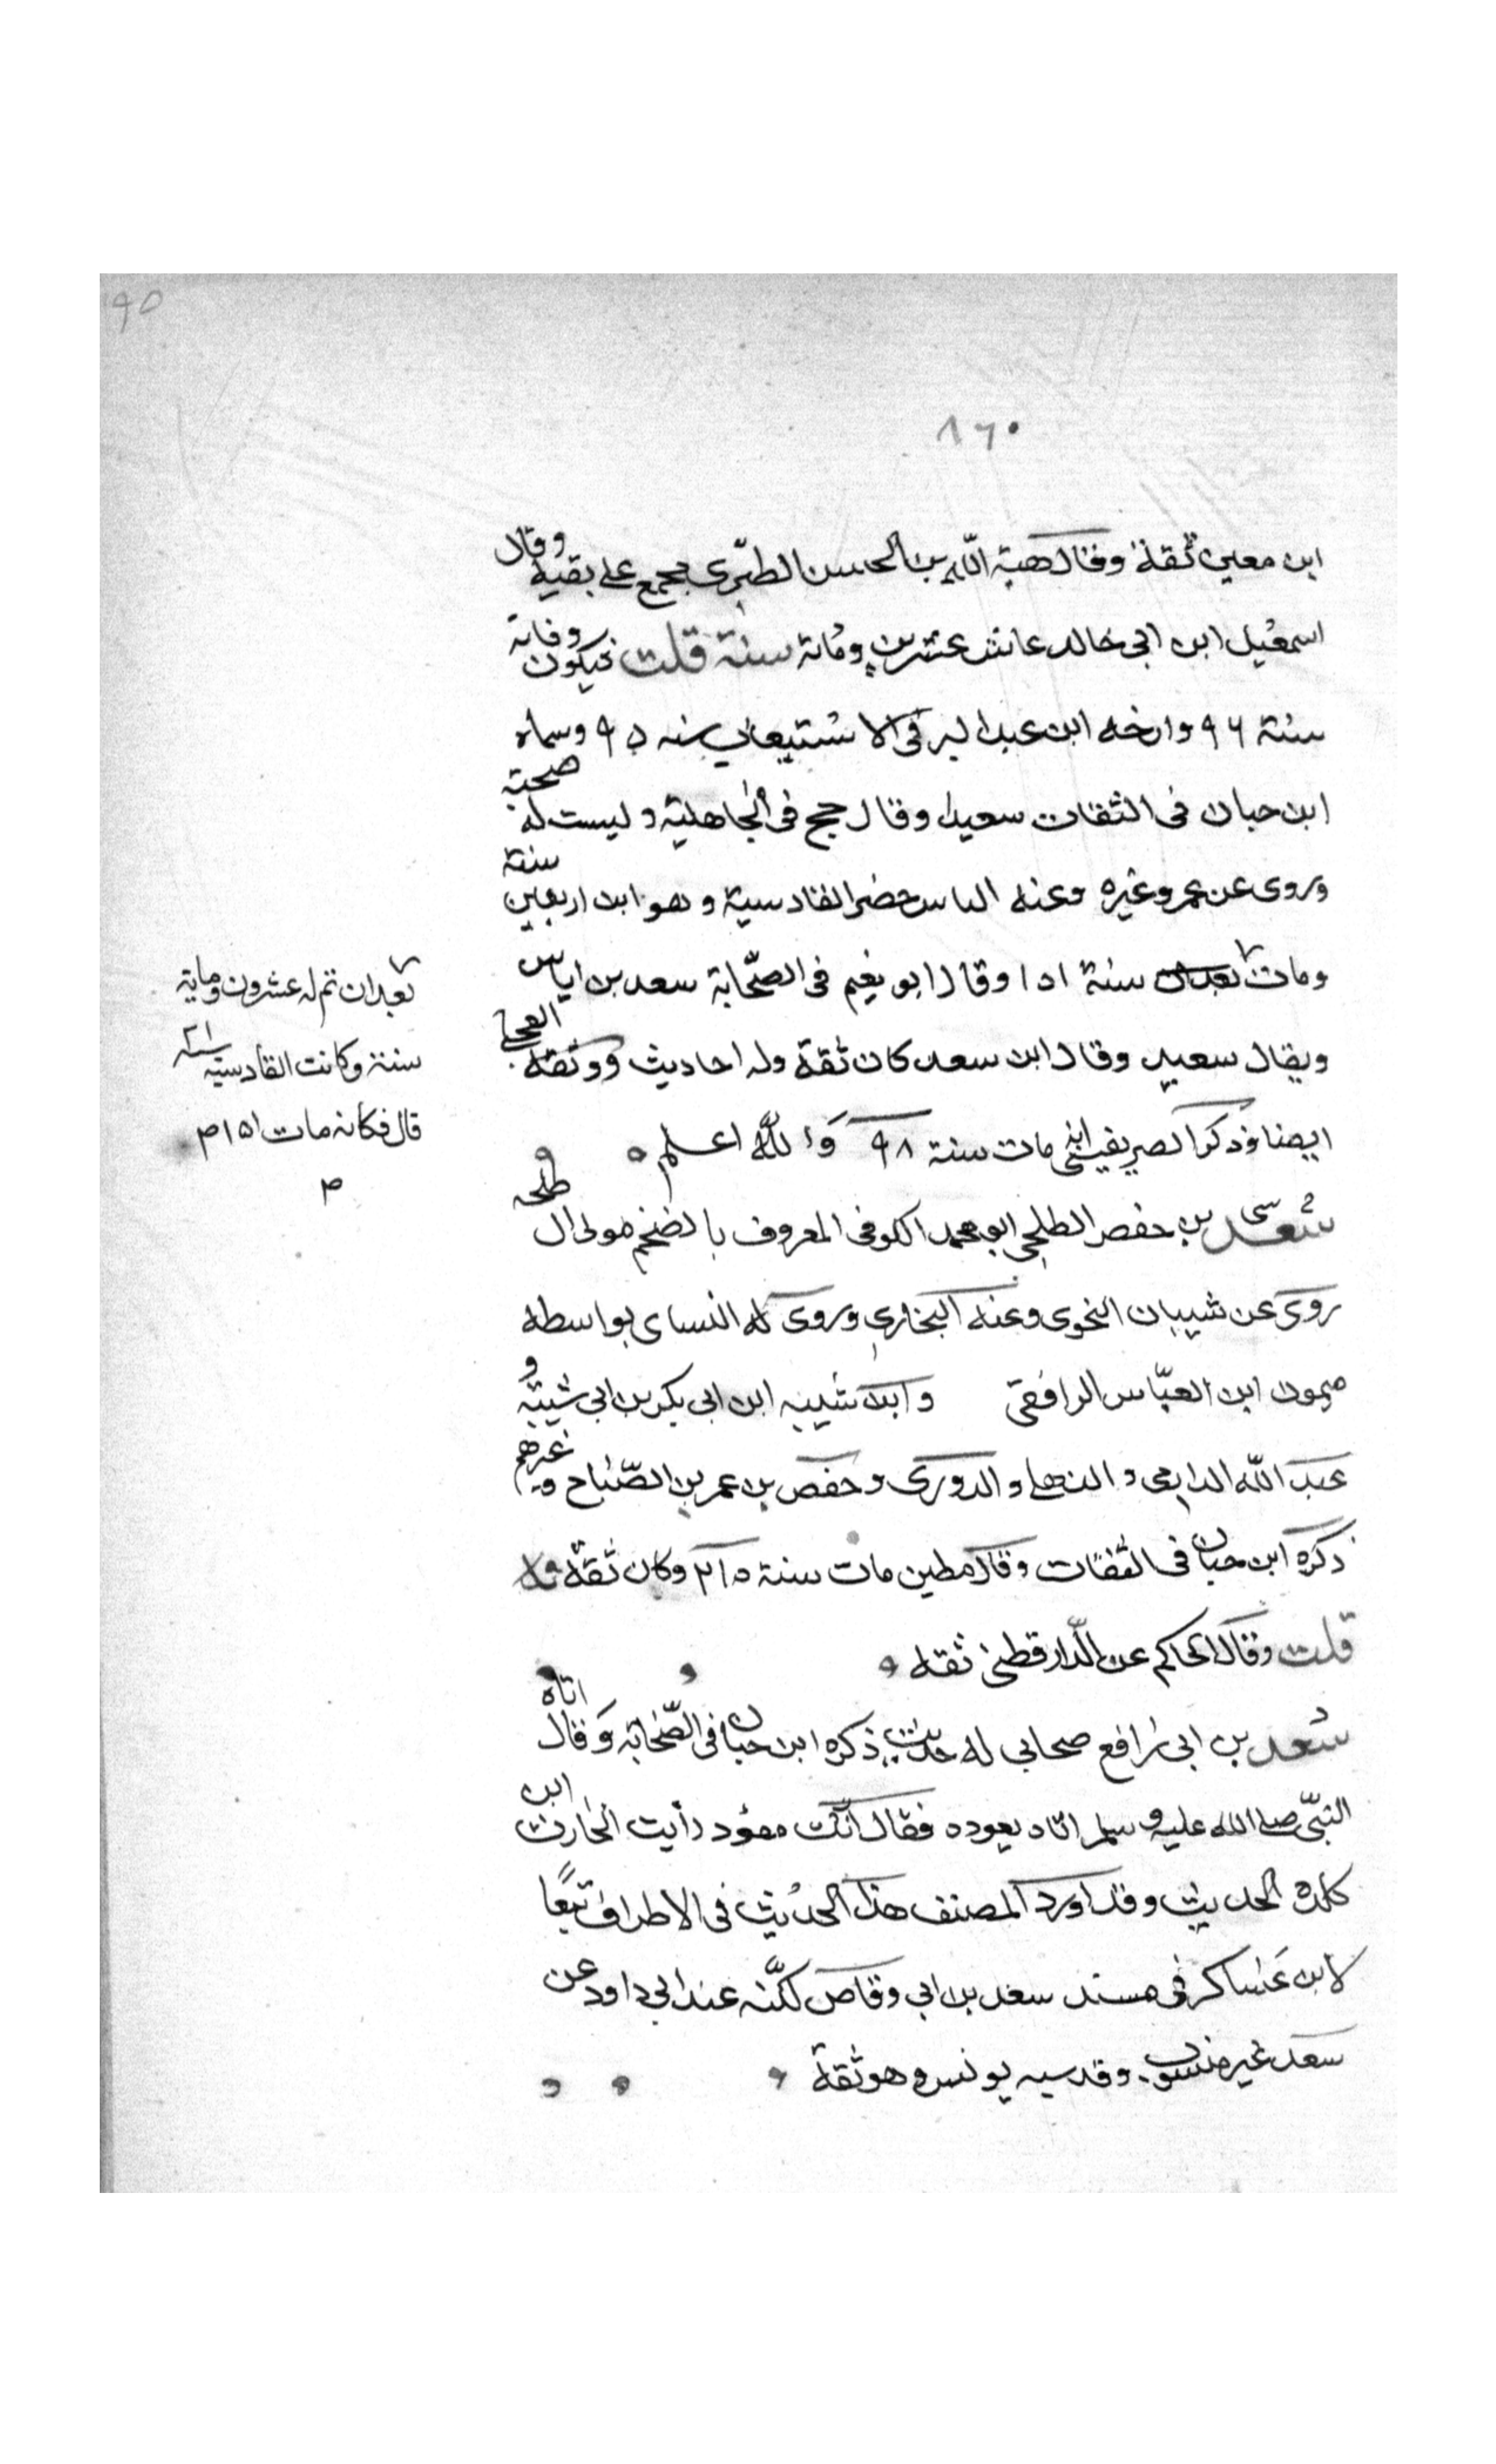 ٩٥
٨٦٠
ابن معين ثقة وقال هبة الله بن الحسن الطبرى مجمع على بقيه وقال
اسمعيل ابن ابى خالد عاش عشرين ومائة سنة قلت فيكون وفاته
سنة ٩٦ وارخه ابن عبد البر فى الاستيعاب سنه ٩٥ وسماه
ابن حبان فى الثقات سعيدا وقال حج فى الجاهلية وليست له صحبة
وروى عن عمر وغيره وعنه الناس حضر القادسية وهو ابن اربعين سنة
ومات سنة ١٠١ وقال ابو نعيم فى الصحابة سعد بن اياس
ويقال سعيد وقال ابن سعد كان ثقة وله احاديث ووثقه العجلى
ايضا وذكر الصريفينى انه مات سنة ٩٨ والله اعلم
بعد ان تم له عشرون وماية
سنة وكانت القادسية سنة ٢١
قال فكانه مات ١٥١ م
م
سعد بن حفص الطلحى ابو محمد الكوفى المعروف بالضخم مولى ال طلحه
روى عن شيبان النحوى وعنه البخارى وروى له النساى بواسطه
ميمون ابن العباس الرافقى وابن شيبه ابن ابى بكر بن ابى شيبة و
عبد الله الدارمى و الذهلى والدورى وحفص بن عمر بن الصباح وغيرهم
ذكره ابن حبان فى الثقات وقال مطين مات سنة ٢١٥ وكان ثقة
قلت وقال الحاكم عن الدارقطنى ثقه
سعد بن ابى رافع صحابى له حديث ذكره ابن حبان فى الصحابة وقال اتاه
النبى صلى الله عليه وسلم اتاه يعوده فقال انك مفؤد رأيت الحارث ابن
كلدة الحديث وقد اورد المصنف هذا الحديث فى الاطراف تبعا
لابن عساكر فى مسند سعد بن ابى وقاص لكنه عند ابى داود عن
سعد غير منسوب وقد سبه يونس وهو ثقة